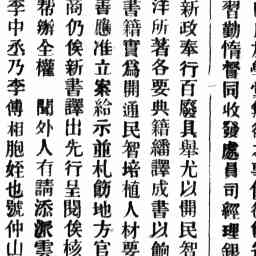 習勤惰督同收發處員司經理銀
新政奉行百廢具舉尤以開民智
洋所著各要典籍繙譯成書以餉
書籍實爲開通民智培植人材要
善應准立案給示並札飭地方官
商仍俟新書譯出先行呈閱俟核
帮辦全權　聞外人有請添派雲
李中丞乃李傅相胞姪也號仲山